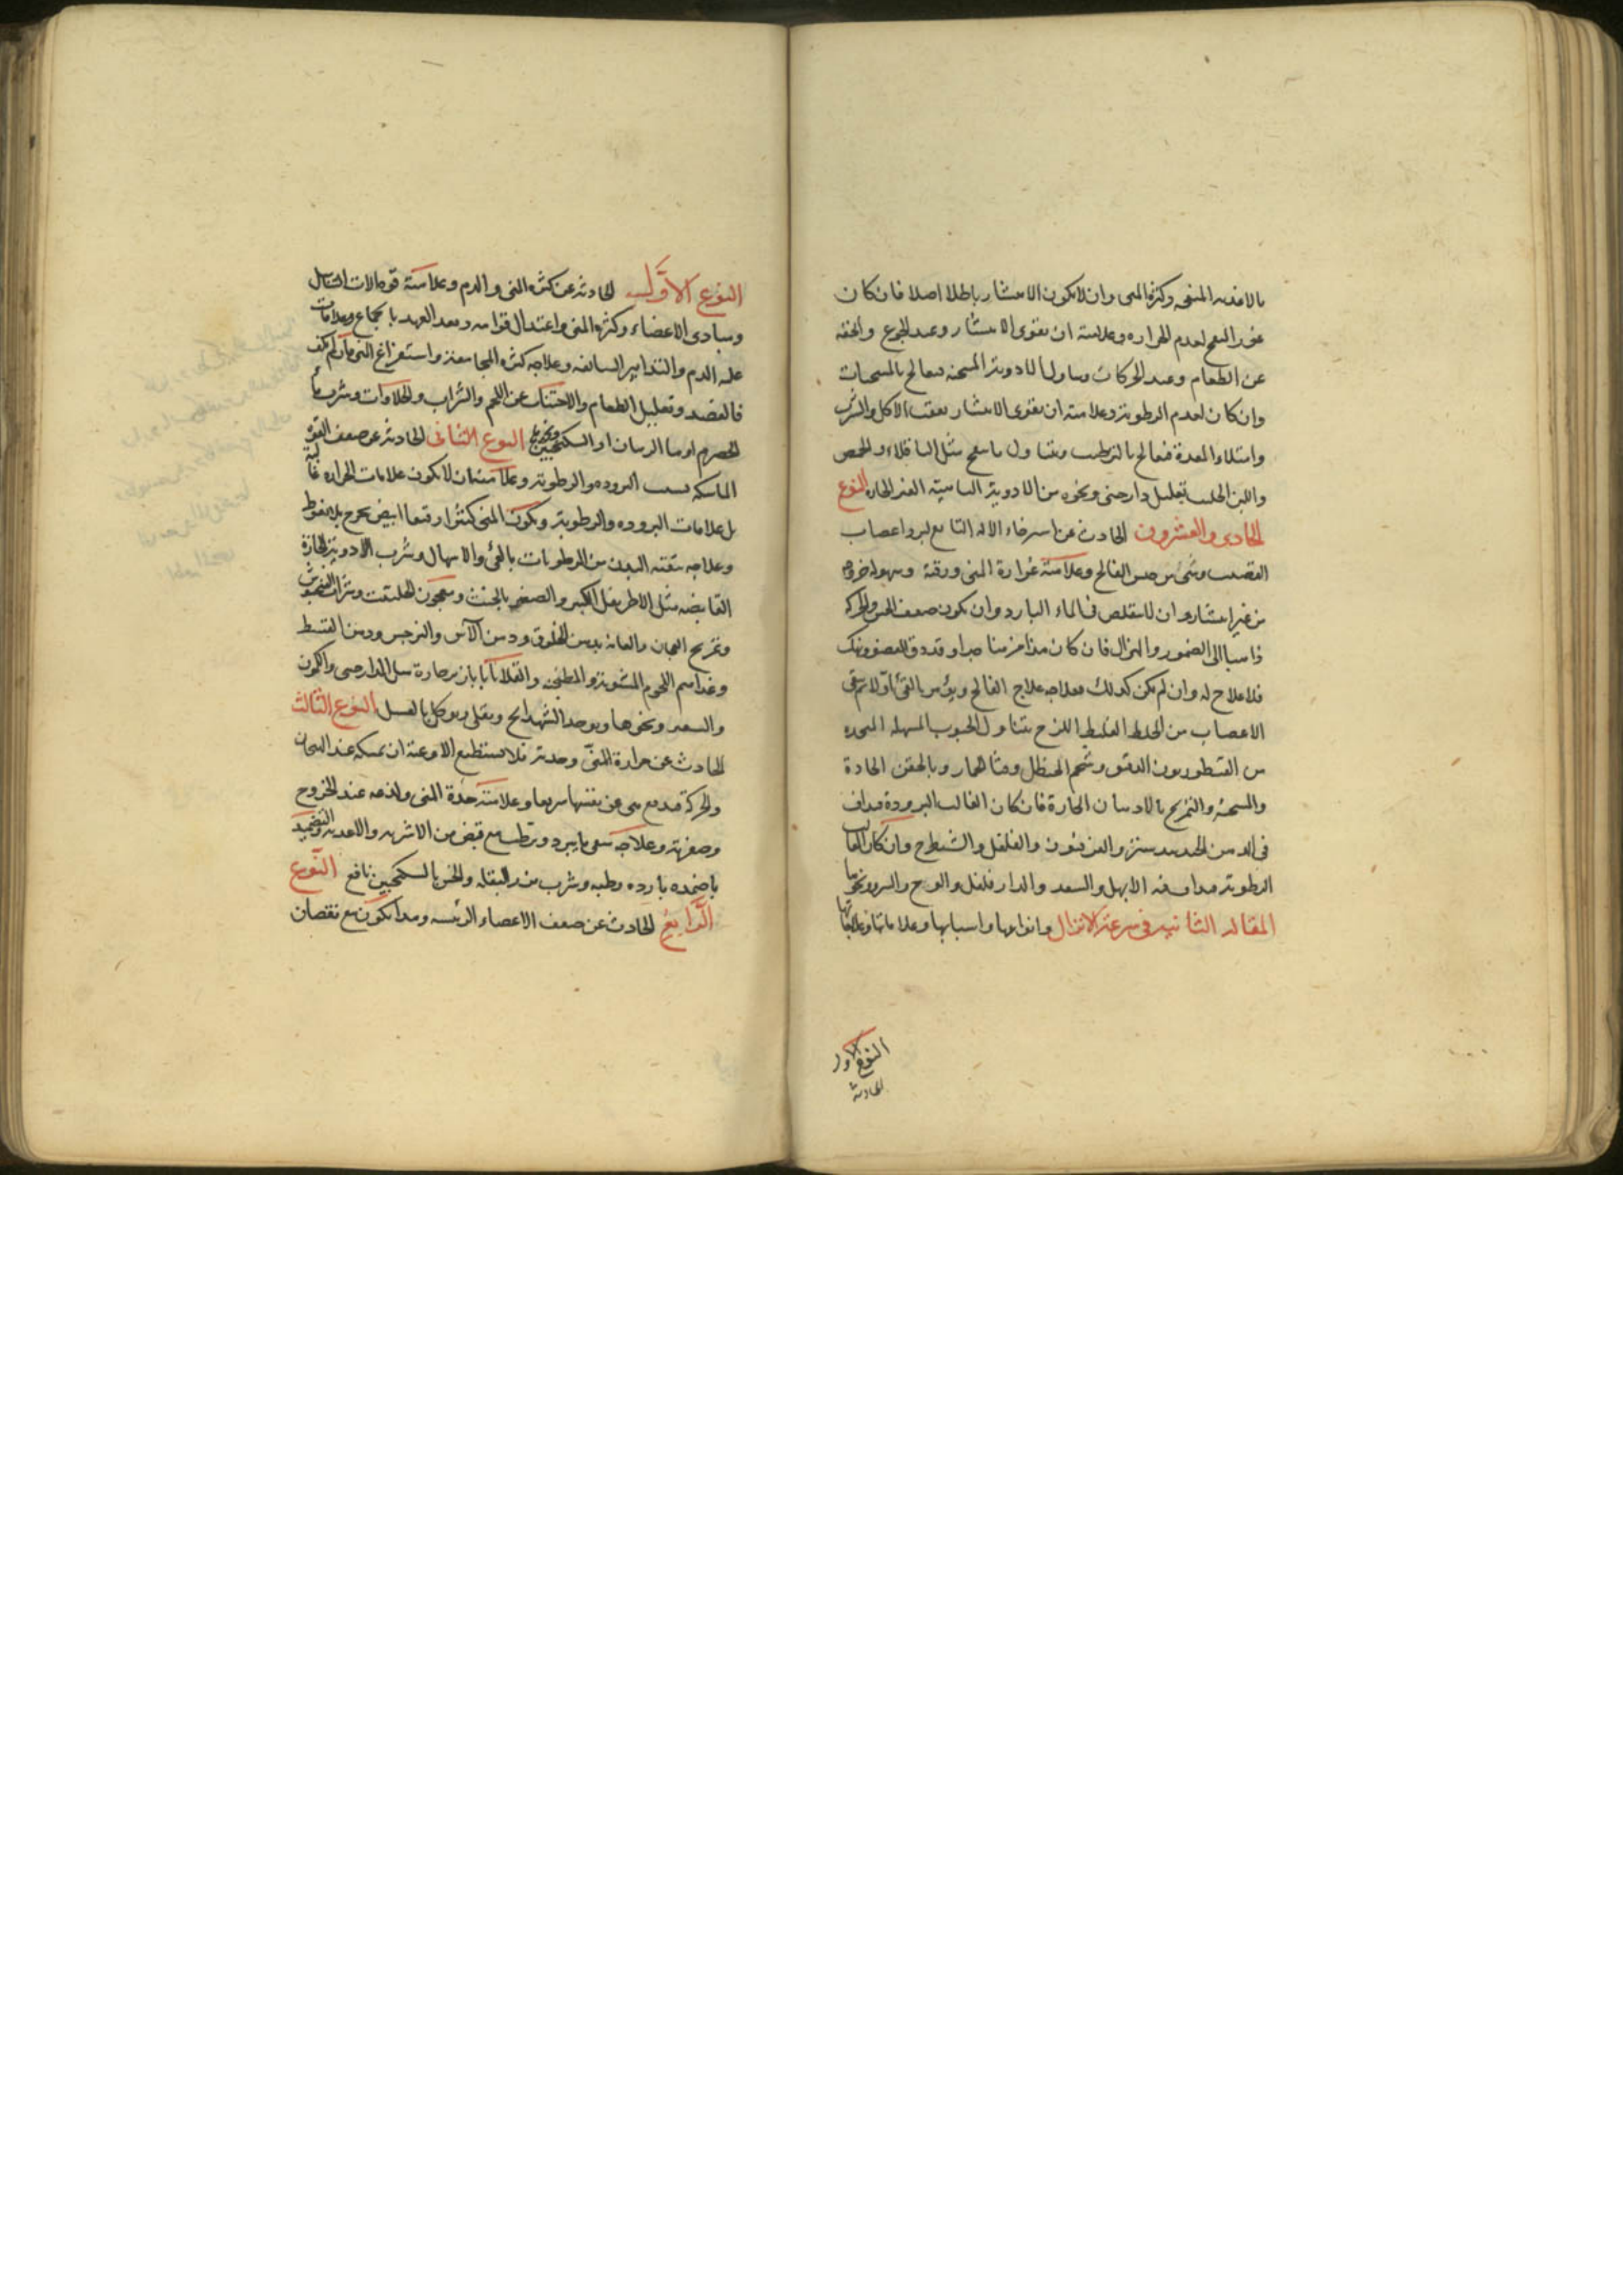 بالاغذيه المنفخه وكثرة المنى وان لا يكون الانتشار باطلا اصلا فان كان
عوز النفخ لعدم الحراره وعلامته ان يقوى الانتشار وعند الجوع والخفه
عن الطعام وعند الحركات وتناول الادوية المسخنه فيعالج بالمسخنات
وان كان لعدم الرطوبة وعلامته ان يقوى الانتشار بعقب الاكل والشرب
وامتلاء المعدة فيعالج بالترطيب وتناول ما ينفخ مثل الباقلاء والحمص
واللبن الحليب بقليل دارصنى ونحوه من الادوية الباهية الغير الحارة النوع
الحادى والعشرون الحادث عن استرخاء الاله التابع لبرد اعصاب
القضيب وشئ من جنس الفالج وعلامته غزارة المنى ورقته وسهولة خروجه
من غير انتشار وان لا يتقلص فى الماء البارد وان يكون ضعف الحس والحركه
ذاهبا الى الضمور والهزال فان كان هذا مزمنا جدا وقد دق العضو ونهك
فلا علاج له وان لم يكن كذلك فعلاجه علاج الفالج ويؤمر بالقئ اولا ثم ينقى
الاعصاب من الخلط الغليظ اللزج بتناول الحبوب المسهله المتخذه
من القنطوريون الدقيق وشحم الحنظل وقثا الحمار وبالحقن الحادة
والمسخنه والتمريخ بالادهان الحارة فان كان الغالب البرودة فيداف
فى الدهن الجندبيدستر والفربيون والفلفل والشيطرج وان كان الغالب
الرطوبة فيداف فيه الابهل والسعد والدارفلفل والوج والسرو ونحوها
المقاله الثانيه فى سرعة الانزال وانواعها واسبابها وعلاماتها وعلاجاتها
النوع الاول
الحادثه
النوع الاول الحادثه عن كثرة المنى والدم وعلامته قوة الات التناسل
ومبادى الاعضاء وكثرة المنى واعتدال قوامه وبعد العهد بالجماع وعلامات
غلبه الدم والتدابير السالفه وعلاجه كثرة المجامعة واستفراغ المنى فان لم يكف
فالفصد وتقليل الطعام والاجتناب عن اللحم والشراب والحلاوات وشرب ماء
الحصرم او ماء الرمان او السكنجبين ونحوه النوع الثانى الحادثه عن ضعف القوة
الماسكه بسبب البروده والرطوبة وعلامته ان لا يكون علامات الحراره غالبة
بل علامات البروده والرطوبة ويكون المنى كثيرا رقيقا ابيض يخرج بلا نعوظ
وعلاجه تنقيه البدن من الرطوبات بالقئ والاسهال وشرب الادوية الحارة
القابضه مثل الاطريفل الكبير والصغير بالخبث ومعجون الحلتيت وشراب
وتمريخ العجان والعانه بدهن الخلوق ودهن الاس والنرجس ودهن القسط
وغذاهم اللحوم المشوية والمطجنه والقلايا بابازير حارة مثل الدارصنى والكمون
والسعتر ونحوها ويوخذ الشهدانج ويقلى ويوكل بالعسل النوع الثالث
الحادث عن حرارة المنى وحدته فلا يستطيع الاوعيه ان يمسكه عند الهيجان
والحركة فيدفع عن نفسها سريعا وعلامته حدة المنى ولذعه عند الخروج
وصفرته وعلاجه سقى ما يبرد ويرطب مع قبض من الاشربه والاغذيه والتضميد
باضمده بارده رطبه وشرب بزر البقله والخس بالسكنجبين نافع النوع
الرابع الحادث عن ضعف الاعضاء الرئيسه وهذا يكون مع نقصان